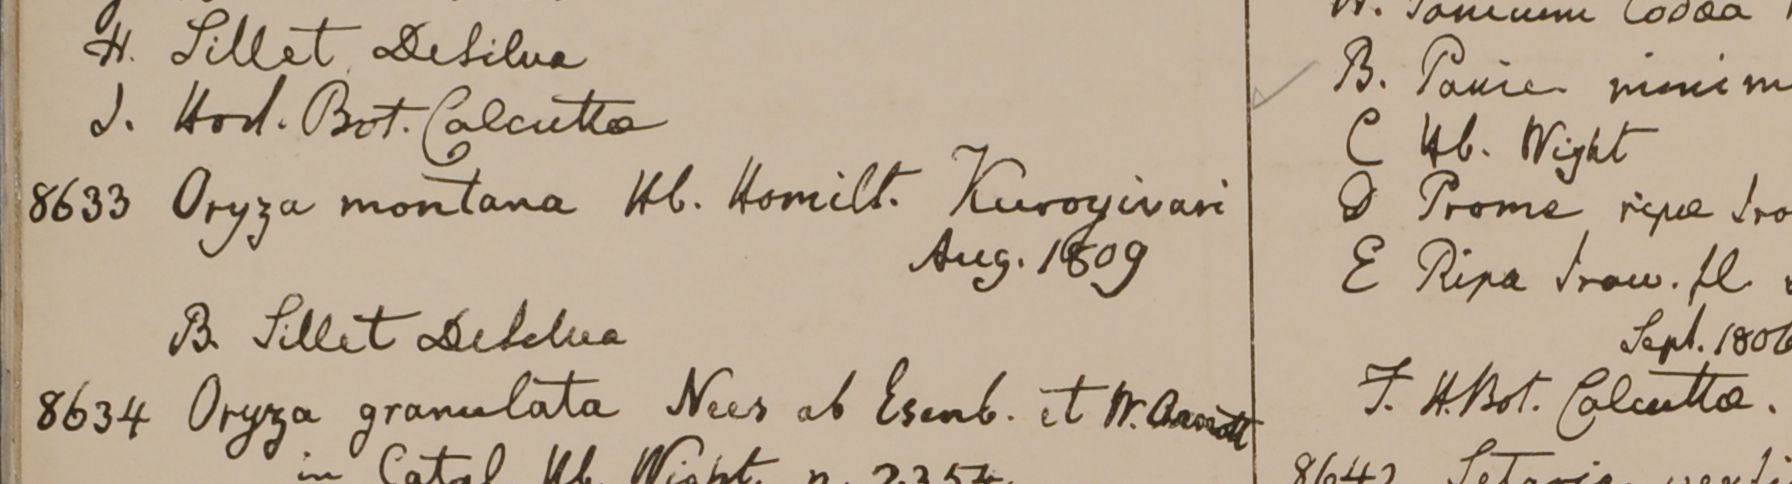 H. Sillet DeSilva
J. Hort. Bot. Calcutta
8633 Oryza montana Hb. Hamilt. Kuroyivari
Aug. 1809
B. Sillet DeSilva
8634 Oryza granulata Nees ab Esenb. et W. Arnott
in Catal Hb. Wight. n. 2354.
B. Panic. minim
C Hb. Wight
D Prome ripæ Ira
E Ripa Iraw. fl.
Sept. 1806
F. H. Bot. Calcutta.
8642 Setaria verti